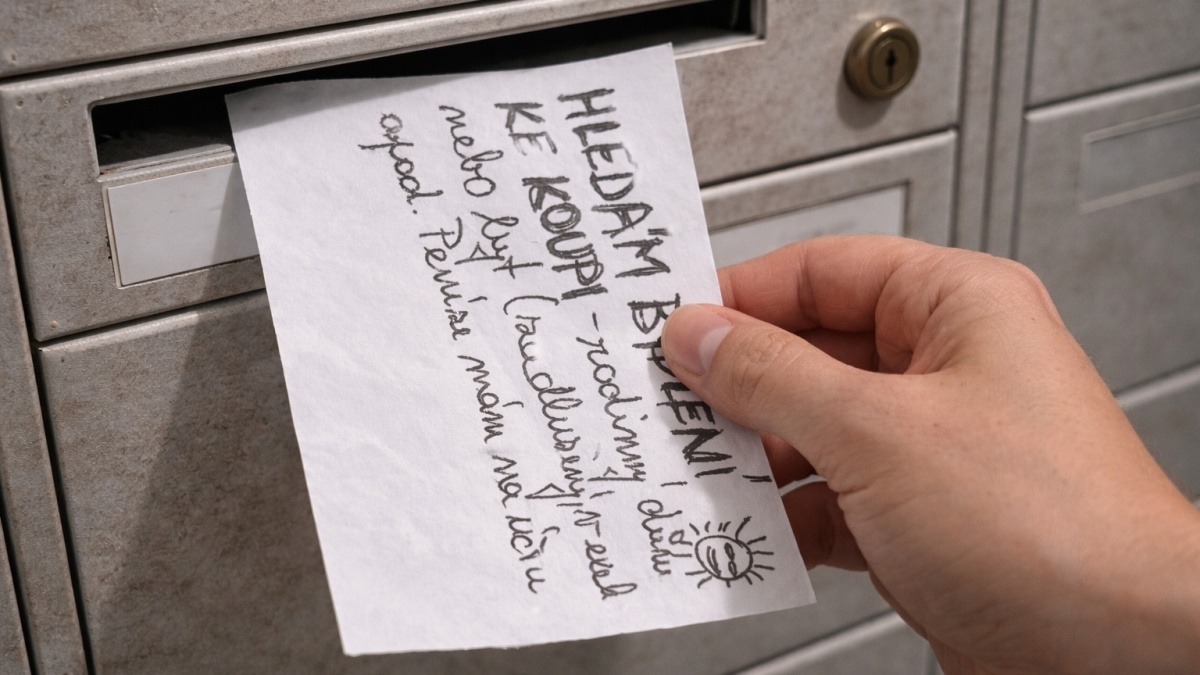 HLEDÁM BYDLENÍ
KE KOUPI - rodinný dům
nebo byt (zadlužený, v exek
apod. Peníze mám na účtu